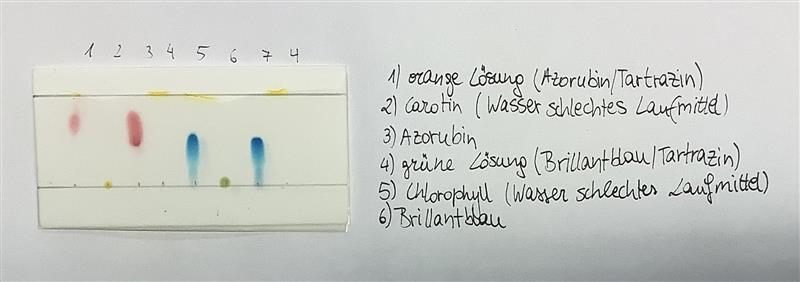 1 2 3 4 5 6 7 4
1) orange Lösung (Azorubin/Tartrazin)
2) Carotin (Wasser schlechtes Laufmittel)
3) Azorubin
4) grüne Lösung (Brillantblau/Tartrazin)
5) Chlorophyll (Wasser schlechtes Laufmittel)
6) Brillantblau